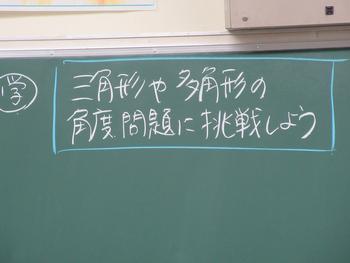 学 三角形や多角形の
角度問題に挑戦しよう